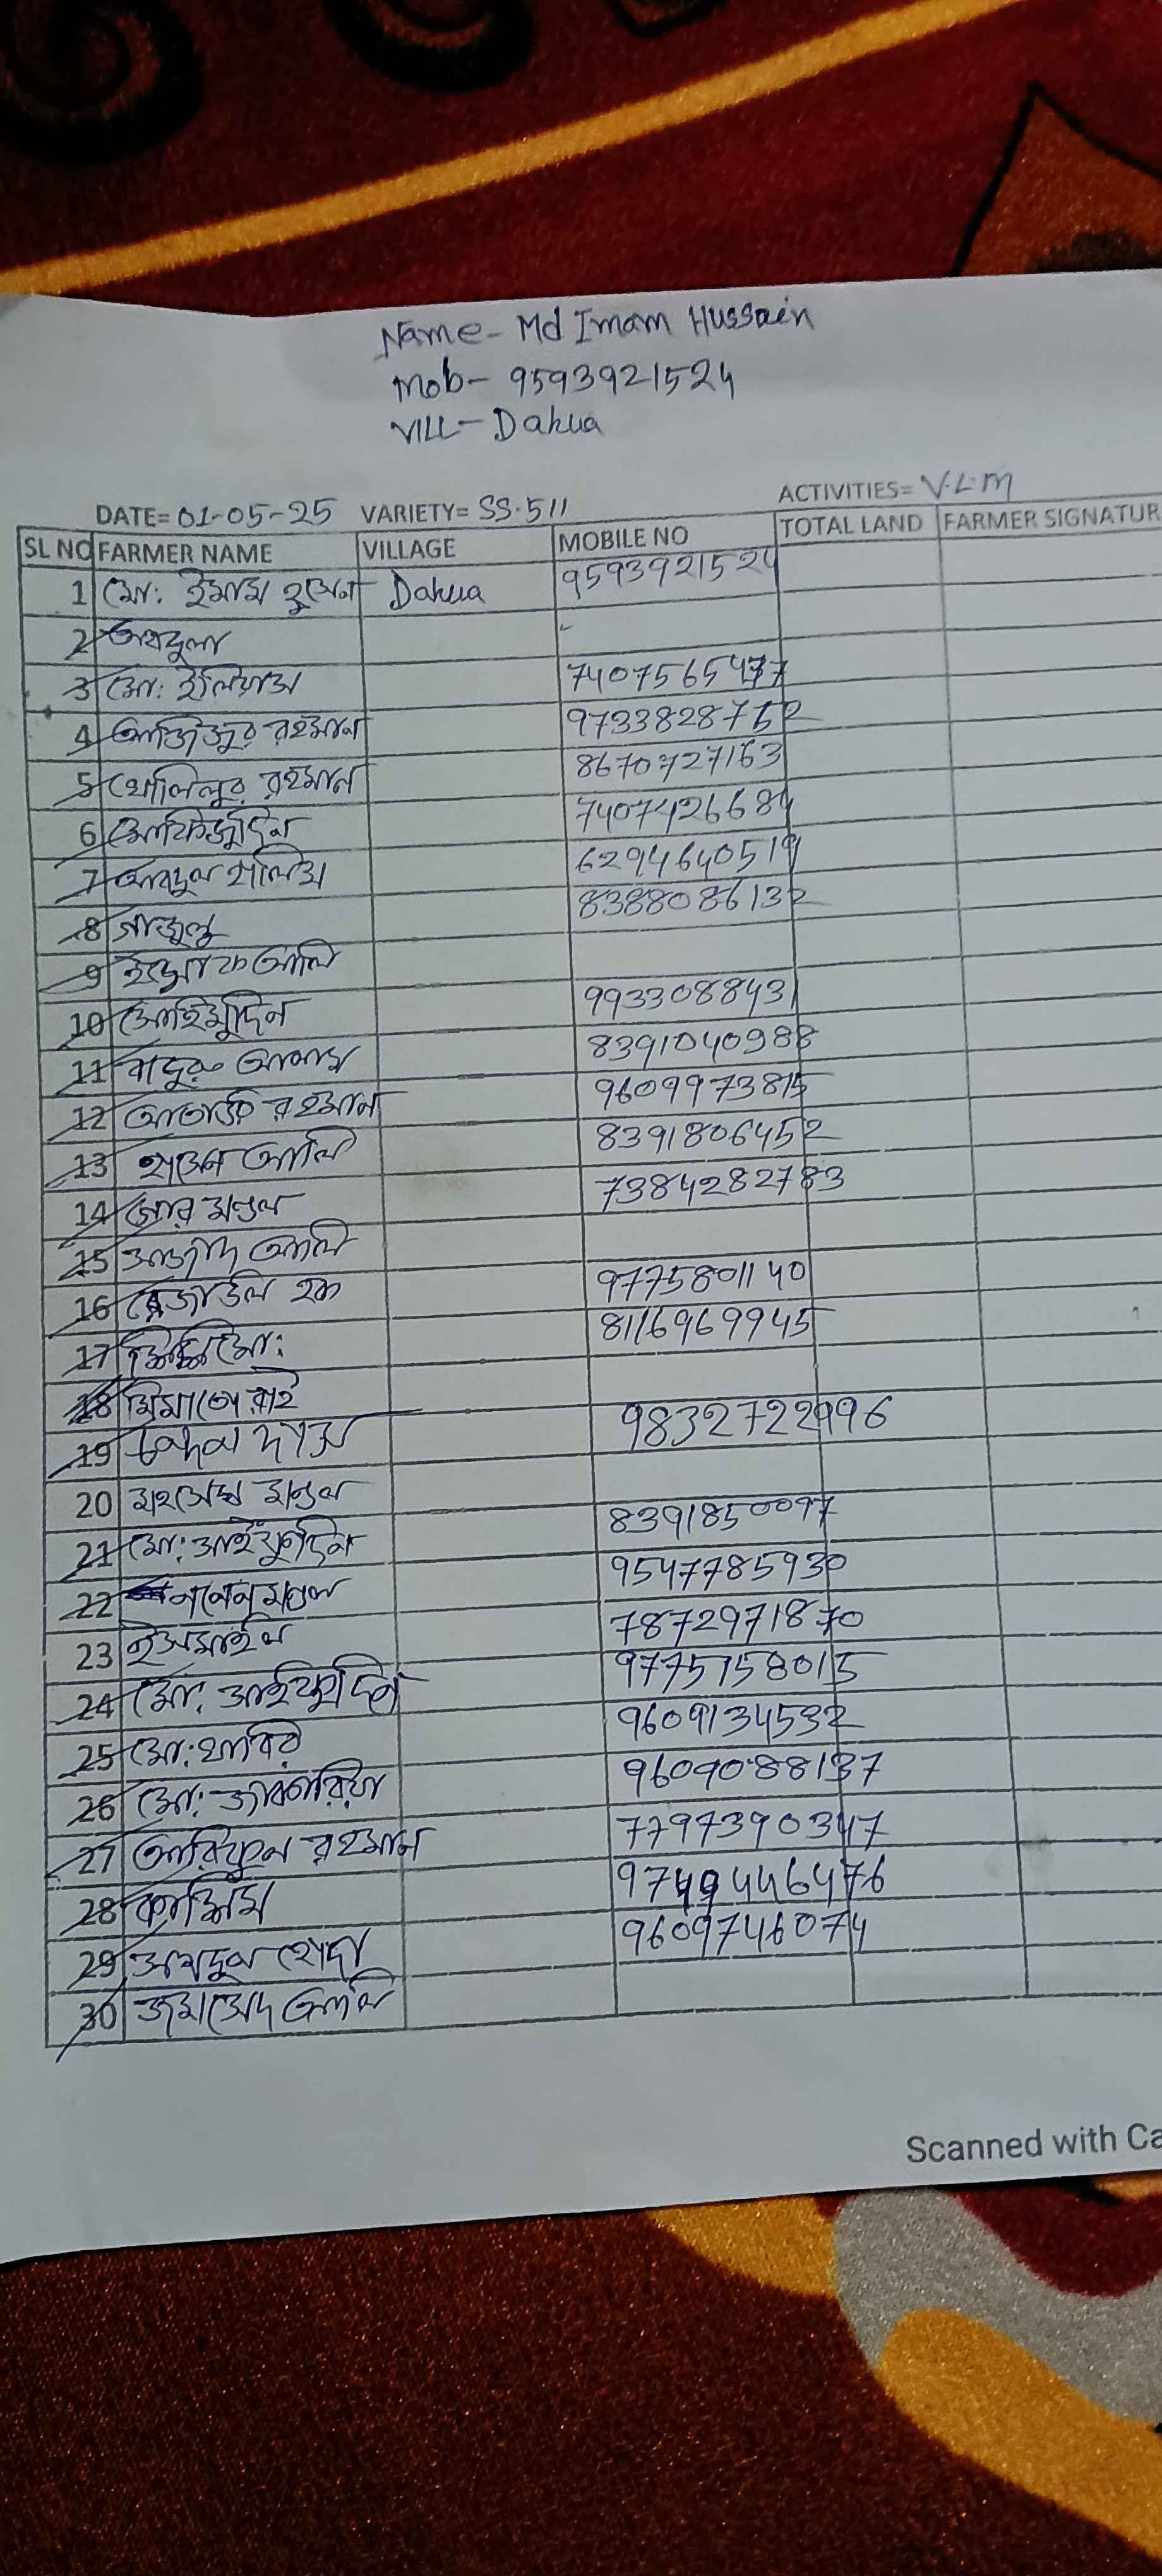 Name- Md Imam Hussain
Mob- 9593921524
VILL- Dahua
DATE= 01-05-25 VARIETY= SS-511 ACTIVITIES= V.L.M
SL NO FARMER NAME VILLAGE MOBILE NO TOTAL LAND FARMER SIGNATUR
1 মো: ইমাম হুসেন Dahua 9593921524
2 আবদুলা
3 মো: ইলিয়াস 7407565477
4 আজিজুর রহমান 9733828752
5 খোলিলুর রহমান 8670727163
6 মোফিজুদ্দিন 7407426684
7 আবদুল হালিম 6294640519
8 8388086132
9 আলি
10 9933088431
11 আলাম 8391040988
12 রহমান 9609973815
13 হুসেন আলি 8391806452
14 মণ্ডল 7384282783
15 আজাদ আলি
16 রেজাউল হক 9775801140
17 8116969945
18
19 দাস 9832722996
20 মণ্ডল
21 মো: 8391850097
22 মণ্ডল 9547785930
23 ইসমাইল 7872971870
24 মো: সাইফুদ্দিন 9775758015
25 মো: 9609134532
26 মো: জাকারিয়া 9609088137
27 আরিফুল রহমান 7797390347
28 কাশিম 9749446476
29 আবদুল 9609746074
30 জমসেদ আলি
Scanned with Ca